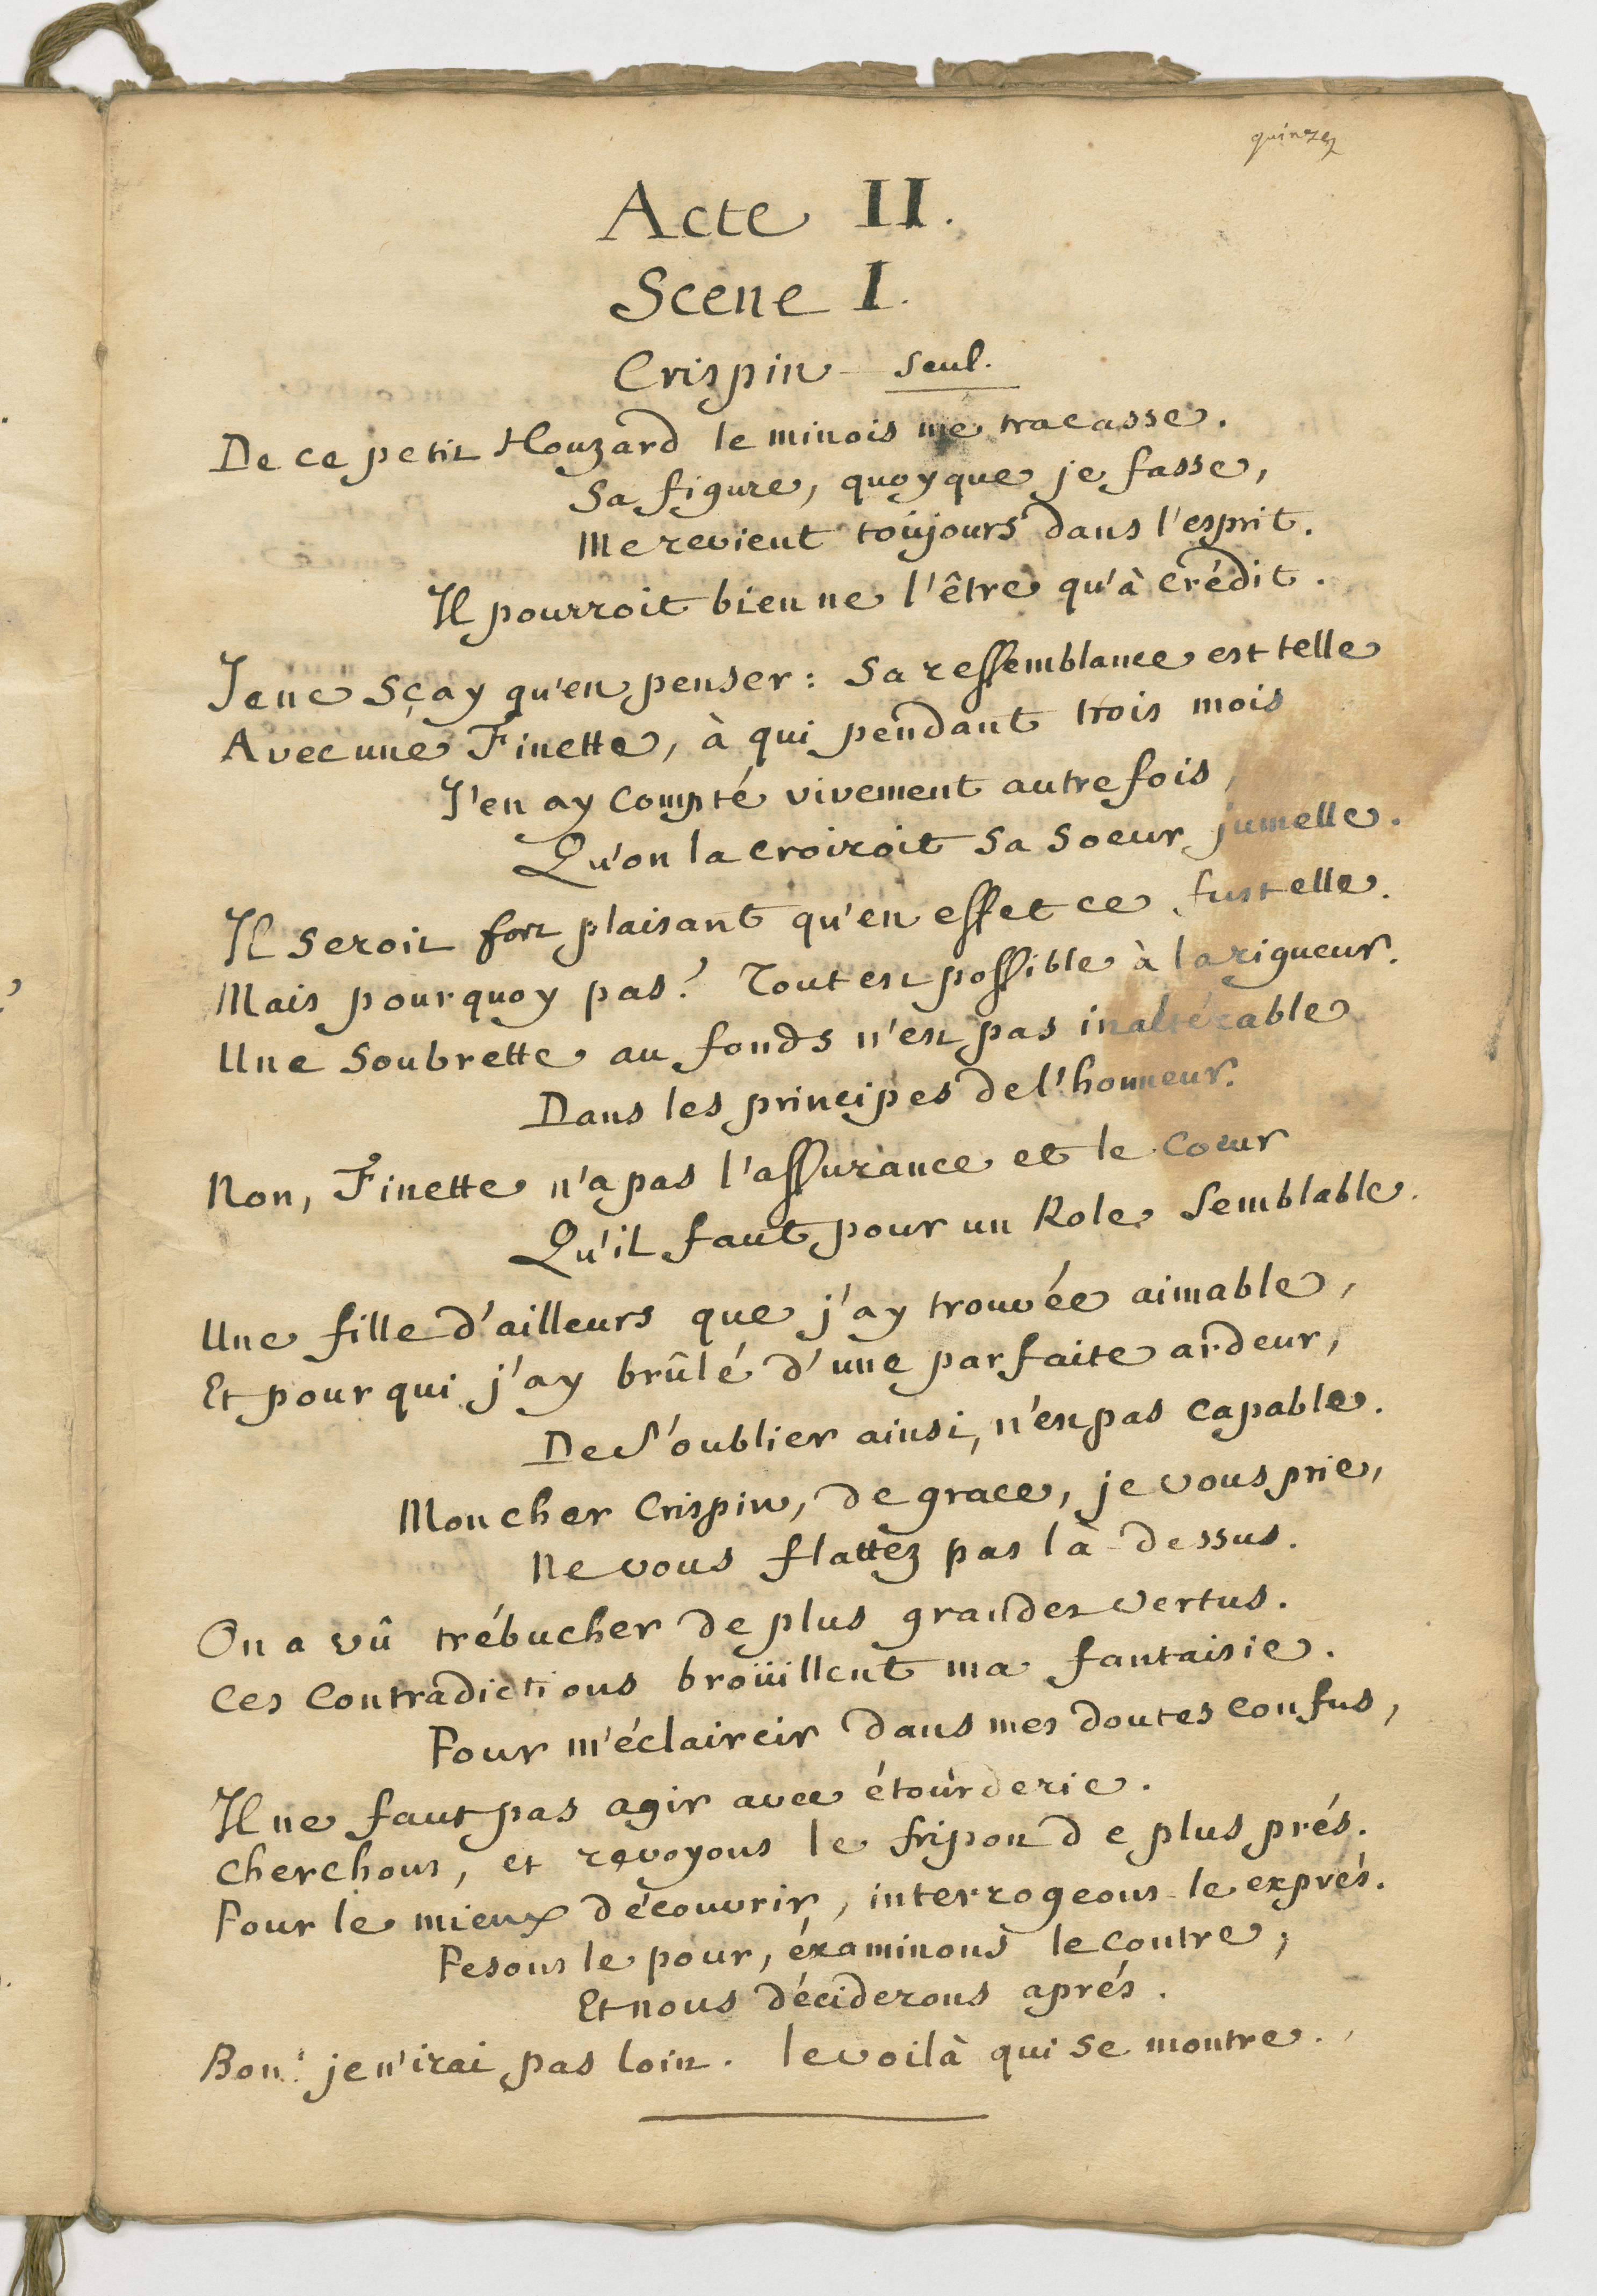 quinze
Acte II.
Scene I.
Crispin seul.
De ce petit Houzard le minois me tracasse.
Sa figure, quoyque je fasse,
Me revient toûjours dans l'esprit.
Il pourroit bien ne l'être qu'à crédit.
Je ne sçay qu'en penser : Sa ressemblance est telle
Avec une Finette, à qui pendant trois mois
J'en ay compté vivement autrefois,
Qu'on la croiroit sa soeur jumelle.
Il seroit fort plaisant qu'en effet ce fust elle.
Mais pourquoy pas? Tout est possible à la rigueur.
Une soubrette au fonds n'est pas inaltérable
Dans les principes de l'honneur.
Non, Finette n'a pas l'assurance et le coeur
Qu'il faut pour un Role semblable.
Une fille d'ailleurs que j'ay trouvée aimable,
Et pour qui j'ay brûlé d'une parfaite ardeur,
De s'oublier ainsi, n'est pas capable.
Mon cher Crispin, de grace, je vous prie,
Ne vous flattez pas là-dessus.
On a vû trébucher de plus grandes vertus.
Ces contradictions broüillent ma fantaisie.
Pour m'éclaircir dans mes doutes confus,
Il ne faut pas agir avec étourderie.
Cherchons, et revoyons le fripon de plus prés.
Pour le mieux découvrir, interrogeons-le exprés.
Pesons le pour, éxaminons le contre;
Et nous déciderons aprés.
Bon! je n'irai pas loin. le voilà qui se montre.